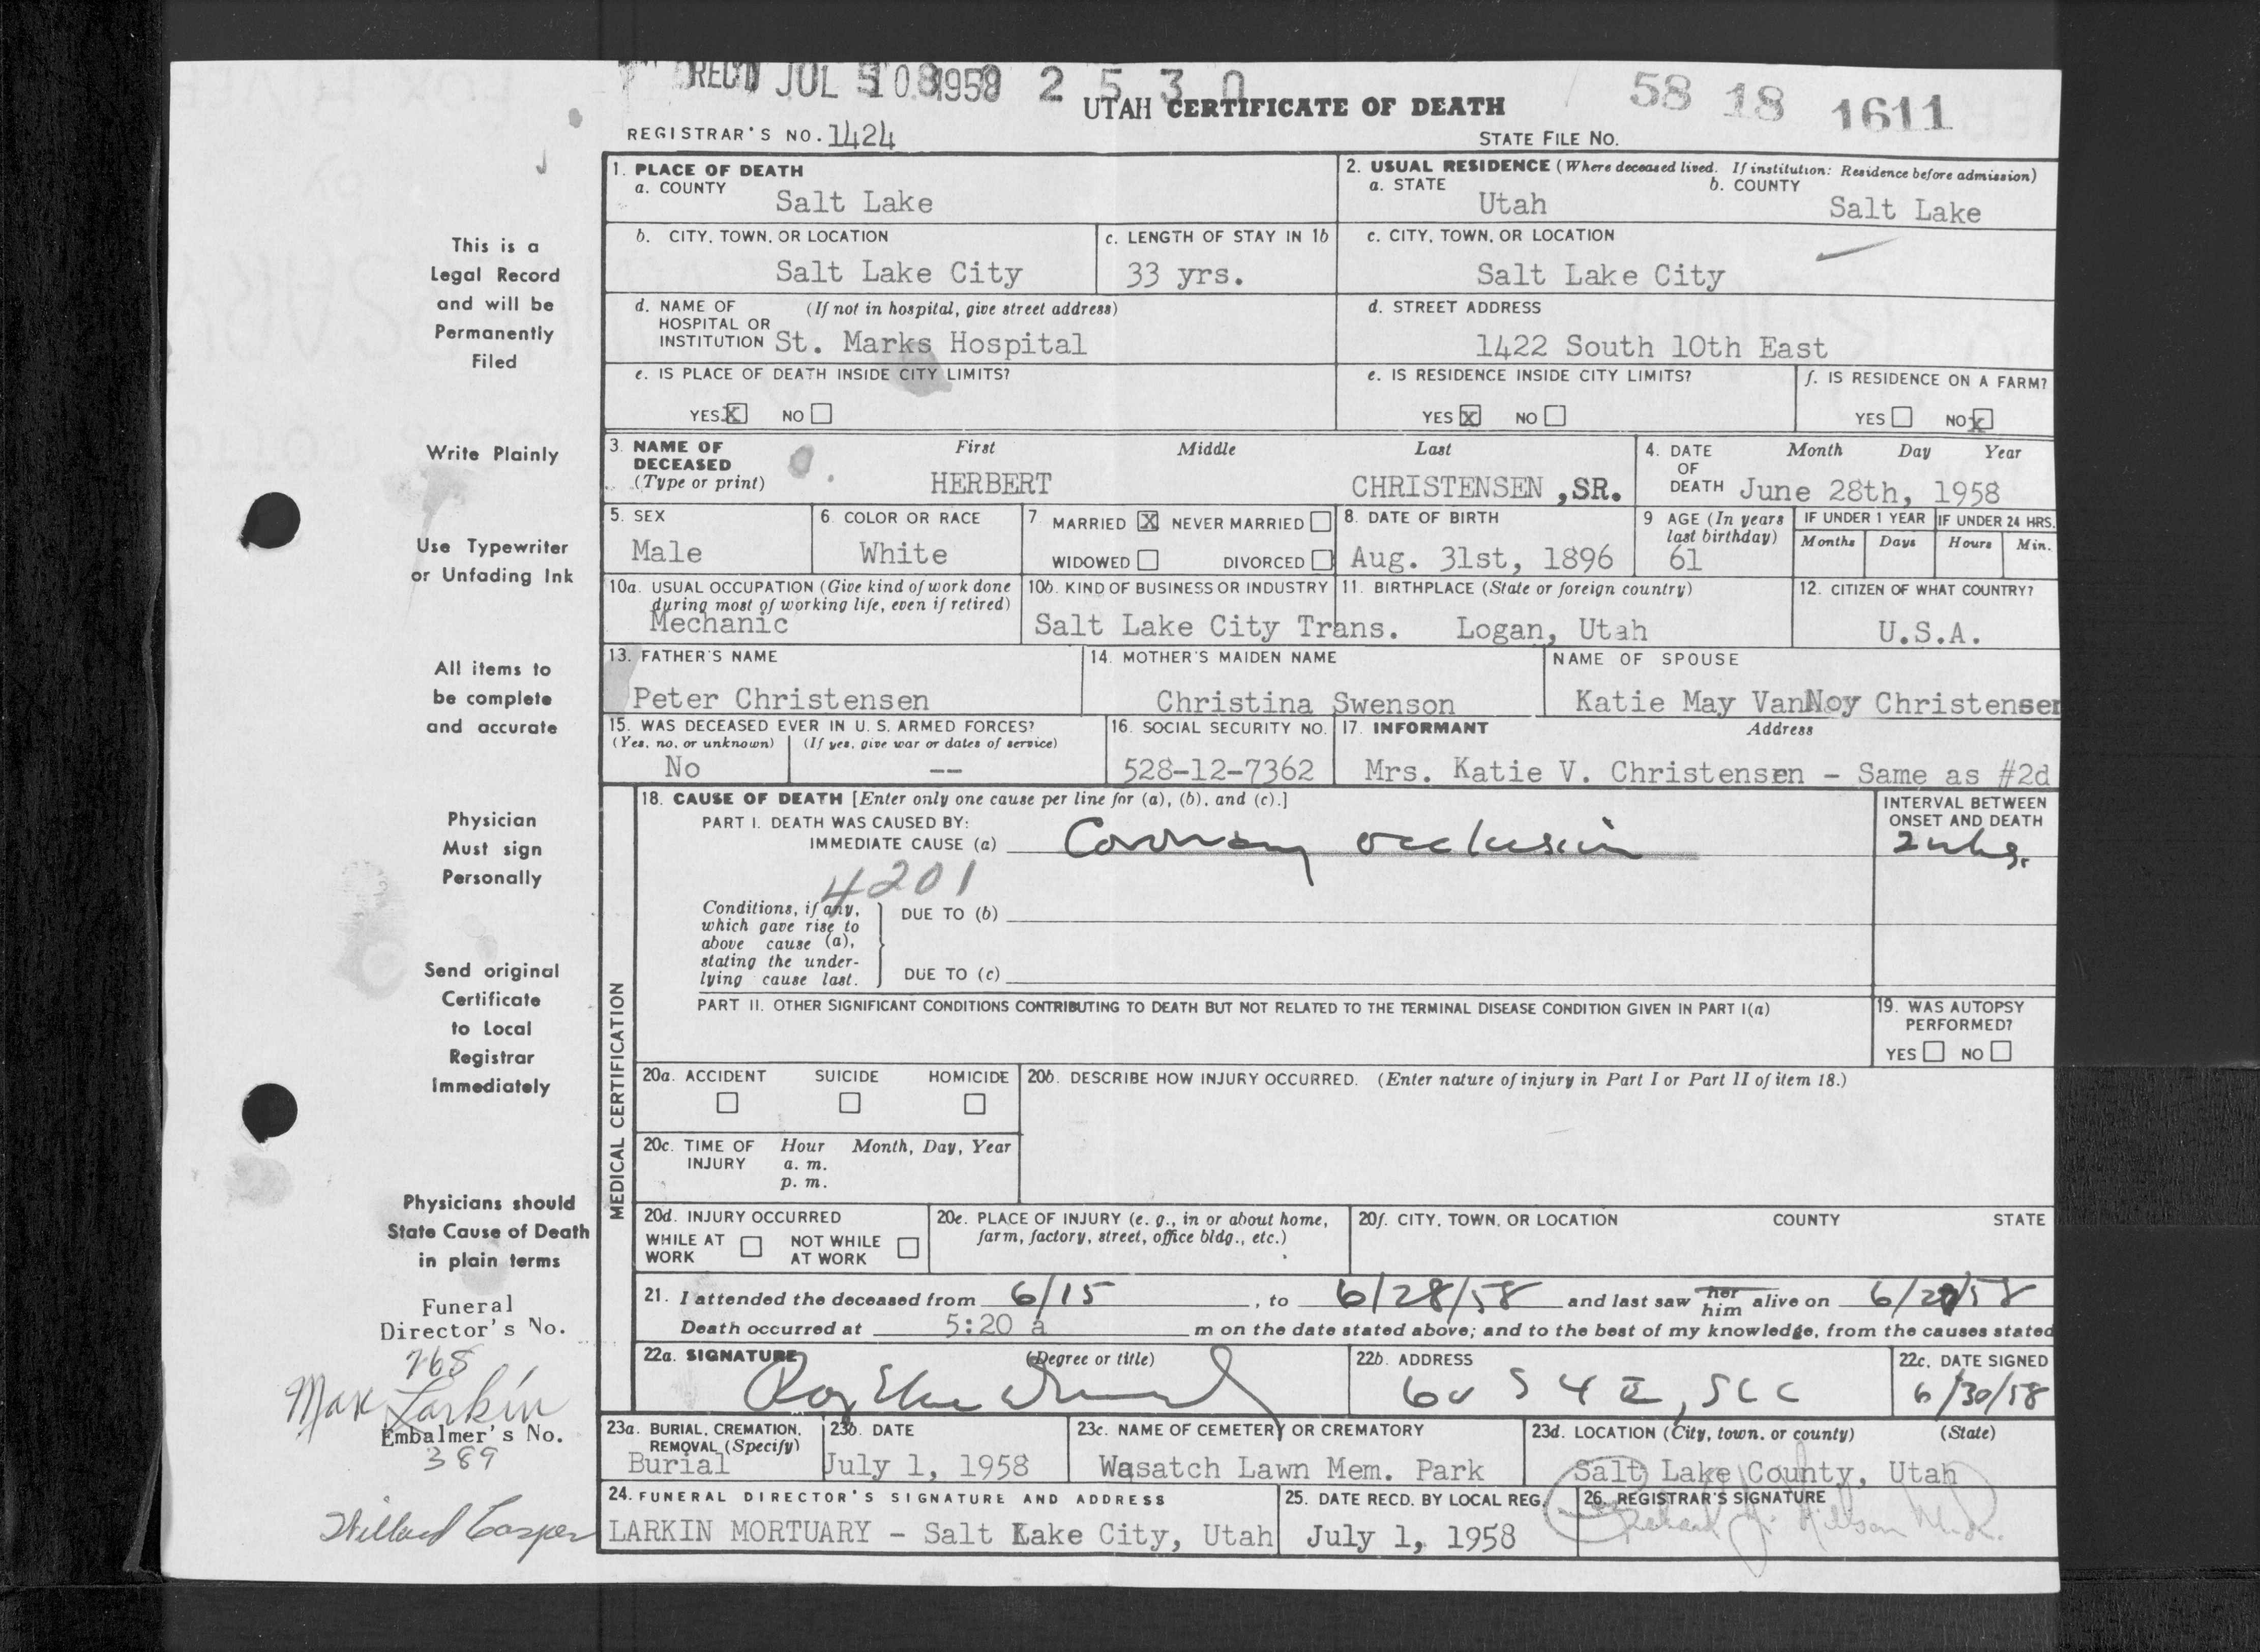 REC'D JUL 1958 2 5 3 0
58 18 1611
UTAH CERTIFICATE OF DEATH
REGISTRAR'S NO. 1424
STATE FILE NO.
This is a
Legal Record
and will be
Permanently
Filed
Write Plainly
Use Typewriter
or Unfading Ink
All items to
be complete
and accurate
Physician
Must sign
Personally
Send original
Certificate
to Local
Registrar
Immediately
Physicians should
State Cause of Death
in plain terms
Funeral
Director's No.
268
Max Larkin
Embalmer's No.
389
Willard Cosper
1. PLACE OF DEATH
a. COUNTY
Salt Lake
2. USUAL RESIDENCE (Where deceased lived. If institution: Residence before admission)
a. STATE
Utah
b. COUNTY
Salt Lake
b. CITY, TOWN, OR LOCATION
Salt Lake City
c. LENGTH OF STAY IN 1b
33 yrs.
c. CITY, TOWN, OR LOCATION
Salt Lake City
d. NAME OF (If not in hospital, give street address)
HOSPITAL OR
INSTITUTION St. Marks Hospital
d. STREET ADDRESS
1422 South 10th East
e. IS PLACE OF DEATH INSIDE CITY LIMITS?
YES X NO
e. IS RESIDENCE INSIDE CITY LIMITS?
YES X NO
f. IS RESIDENCE ON A FARM?
YES NO X
3. NAME OF DECEASED (Type or print)
First Middle Last
HERBERT CHRISTENSEN ,SR.
4. DATE OF DEATH
Month Day Year
June 28th, 1958
5. SEX
Male
6. COLOR OR RACE
White
7. MARRIED X NEVER MARRIED
WIDOWED DIVORCED
8. DATE OF BIRTH
Aug. 31st, 1896
9 AGE (In years last birthday)
61
IF UNDER 1 YEAR
Months Days
IF UNDER 24 HRS.
Hours Min.
10a. USUAL OCCUPATION (Give kind of work done
during most of working life, even if retired)
Mechanic
10b. KIND OF BUSINESS OR INDUSTRY
Salt Lake City Trans.
11. BIRTHPLACE (State or foreign country)
Logan, Utah
12. CITIZEN OF WHAT COUNTRY?
U.S.A.
13. FATHER'S NAME
Peter Christensen
14. MOTHER'S MAIDEN NAME
Christina Swenson
NAME OF SPOUSE
Katie May VanNoy Christensen
15. WAS DECEASED EVER IN U. S. ARMED FORCES?
(Yes, no, or unknown) (If yes, give war or dates of service)
No --
16. SOCIAL SECURITY NO.
528-12-7362
17. INFORMANT Address
Mrs. Katie V. Christensen - Same as #2d
MEDICAL CERTIFICATION
18. CAUSE OF DEATH [Enter only one cause per line for (a), (b), and (c).]
PART I. DEATH WAS CAUSED BY:
IMMEDIATE CAUSE (a) Coronary occlusion
INTERVAL BETWEEN
ONSET AND DEATH
2 wks.
4201
Conditions, if any,
which gave rise to
above cause (a),
stating the under-
lying cause last.
DUE TO (b)
DUE TO (c)
PART II. OTHER SIGNIFICANT CONDITIONS CONTRIBUTING TO DEATH BUT NOT RELATED TO THE TERMINAL DISEASE CONDITION GIVEN IN PART I(a)
19. WAS AUTOPSY
PERFORMED?
YES NO
20a. ACCIDENT SUICIDE HOMICIDE
20b. DESCRIBE HOW INJURY OCCURRED. (Enter nature of injury in Part I or Part II of item 18.)
20c. TIME OF INJURY
Hour Month, Day, Year
a. m.
p. m.
20d. INJURY OCCURRED
WHILE AT WORK NOT WHILE AT WORK
20e. PLACE OF INJURY (e. g., in or about home,
farm, factory, street, office bldg., etc.)
20f. CITY, TOWN, OR LOCATION COUNTY STATE
21. I attended the deceased from 6/15, to 6/28/58 and last saw her him alive on 6/28/58
Death occurred at 5:20 a m on the date stated above; and to the best of my knowledge, from the causes stated
22a. SIGNATURE (Degree or title)
22b. ADDRESS
22c. DATE SIGNED
6/30/58
23a. BURIAL, CREMATION,
REMOVAL (Specify)
Burial
23b. DATE
July 1, 1958
23c. NAME OF CEMETERY OR CREMATORY
Wasatch Lawn Mem. Park
23d. LOCATION (City, town, or county) (State)
Salt Lake County, Utah
24. FUNERAL DIRECTOR'S SIGNATURE AND ADDRESS
LARKIN MORTUARY - Salt Lake City, Utah
25. DATE RECD. BY LOCAL REG.
July 1, 1958
26. REGISTRAR'S SIGNATURE